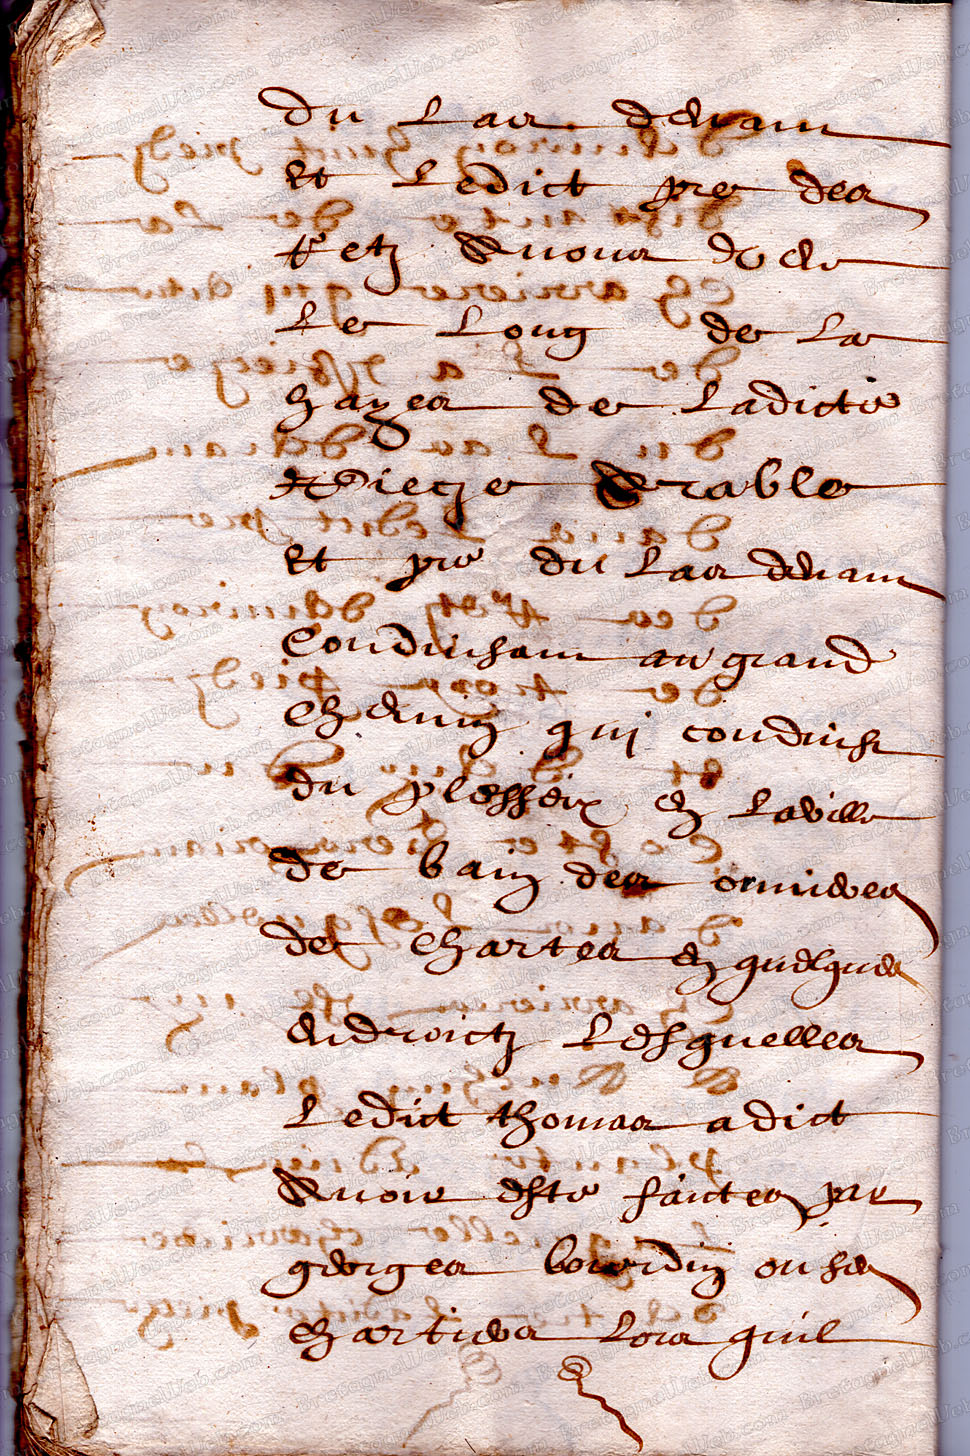 du Lac devant
Et Ledict pre des
Retz Avons veu
Le Long de La
hayes de Ladicte
piecze
Et pre du Lac devant
Conduisant au grand
Chemin qui conduist
du plesseix En Laville
de bain des ornieres
de Chartes En quelques
Endroictz Lesquelles
Ledict thomas a dict
Avoir este faictes par
georges bourdin ou ses
Chartiers Lors quil